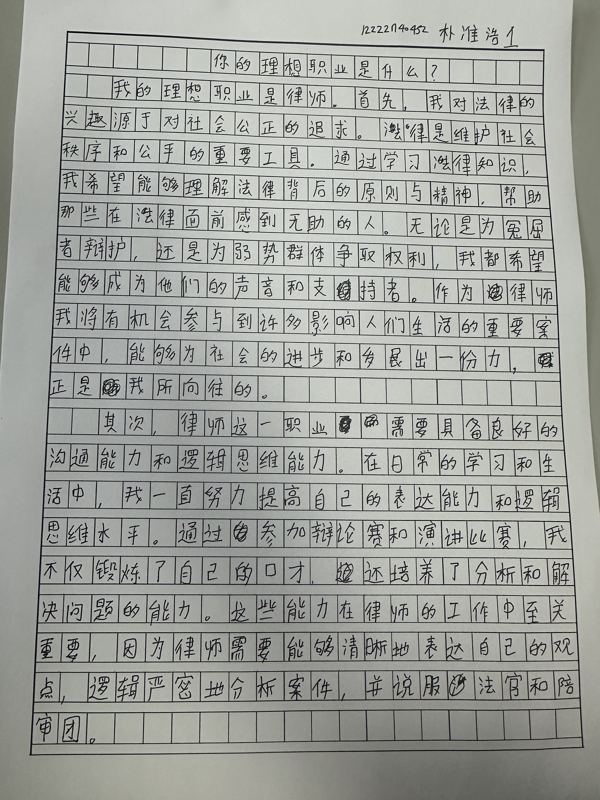 12222740452 朴准浩1
你的理想职业是什么？
我的理想职业是律师。首先，我对法律的
兴趣源于对社会公正的追求。法律是维护社会
秩序和公平的重要工具。通过学习法律知识，
我希望能够理解法律背后的原则与精神，帮助
那些在法律面前感到无助的人。无论是为冤屈
者辩护，还是为弱势群体争取权利，我都希望
能够成为他们的声音和支持者。作为律师
我将有机会参与到许多影响人们生活的重要案
件中，能够为社会的进步和发展出一份力，
正是我所向往的。
其次，律师这一职业需要具备良好的
沟通能力和逻辑思维能力。在日常的学习和生
活中，我一直努力提高自己的表达能力和逻辑
思维水平。通过参加辩论赛和演讲比赛，我
不仅锻炼了自己的口才，还培养了分析和解
决问题的能力。这些能力在律师的工作中至关
重要，因为律师需要能够清晰地表达自己的观
点，逻辑严密地分析案件，并说服法官和陪
审团。